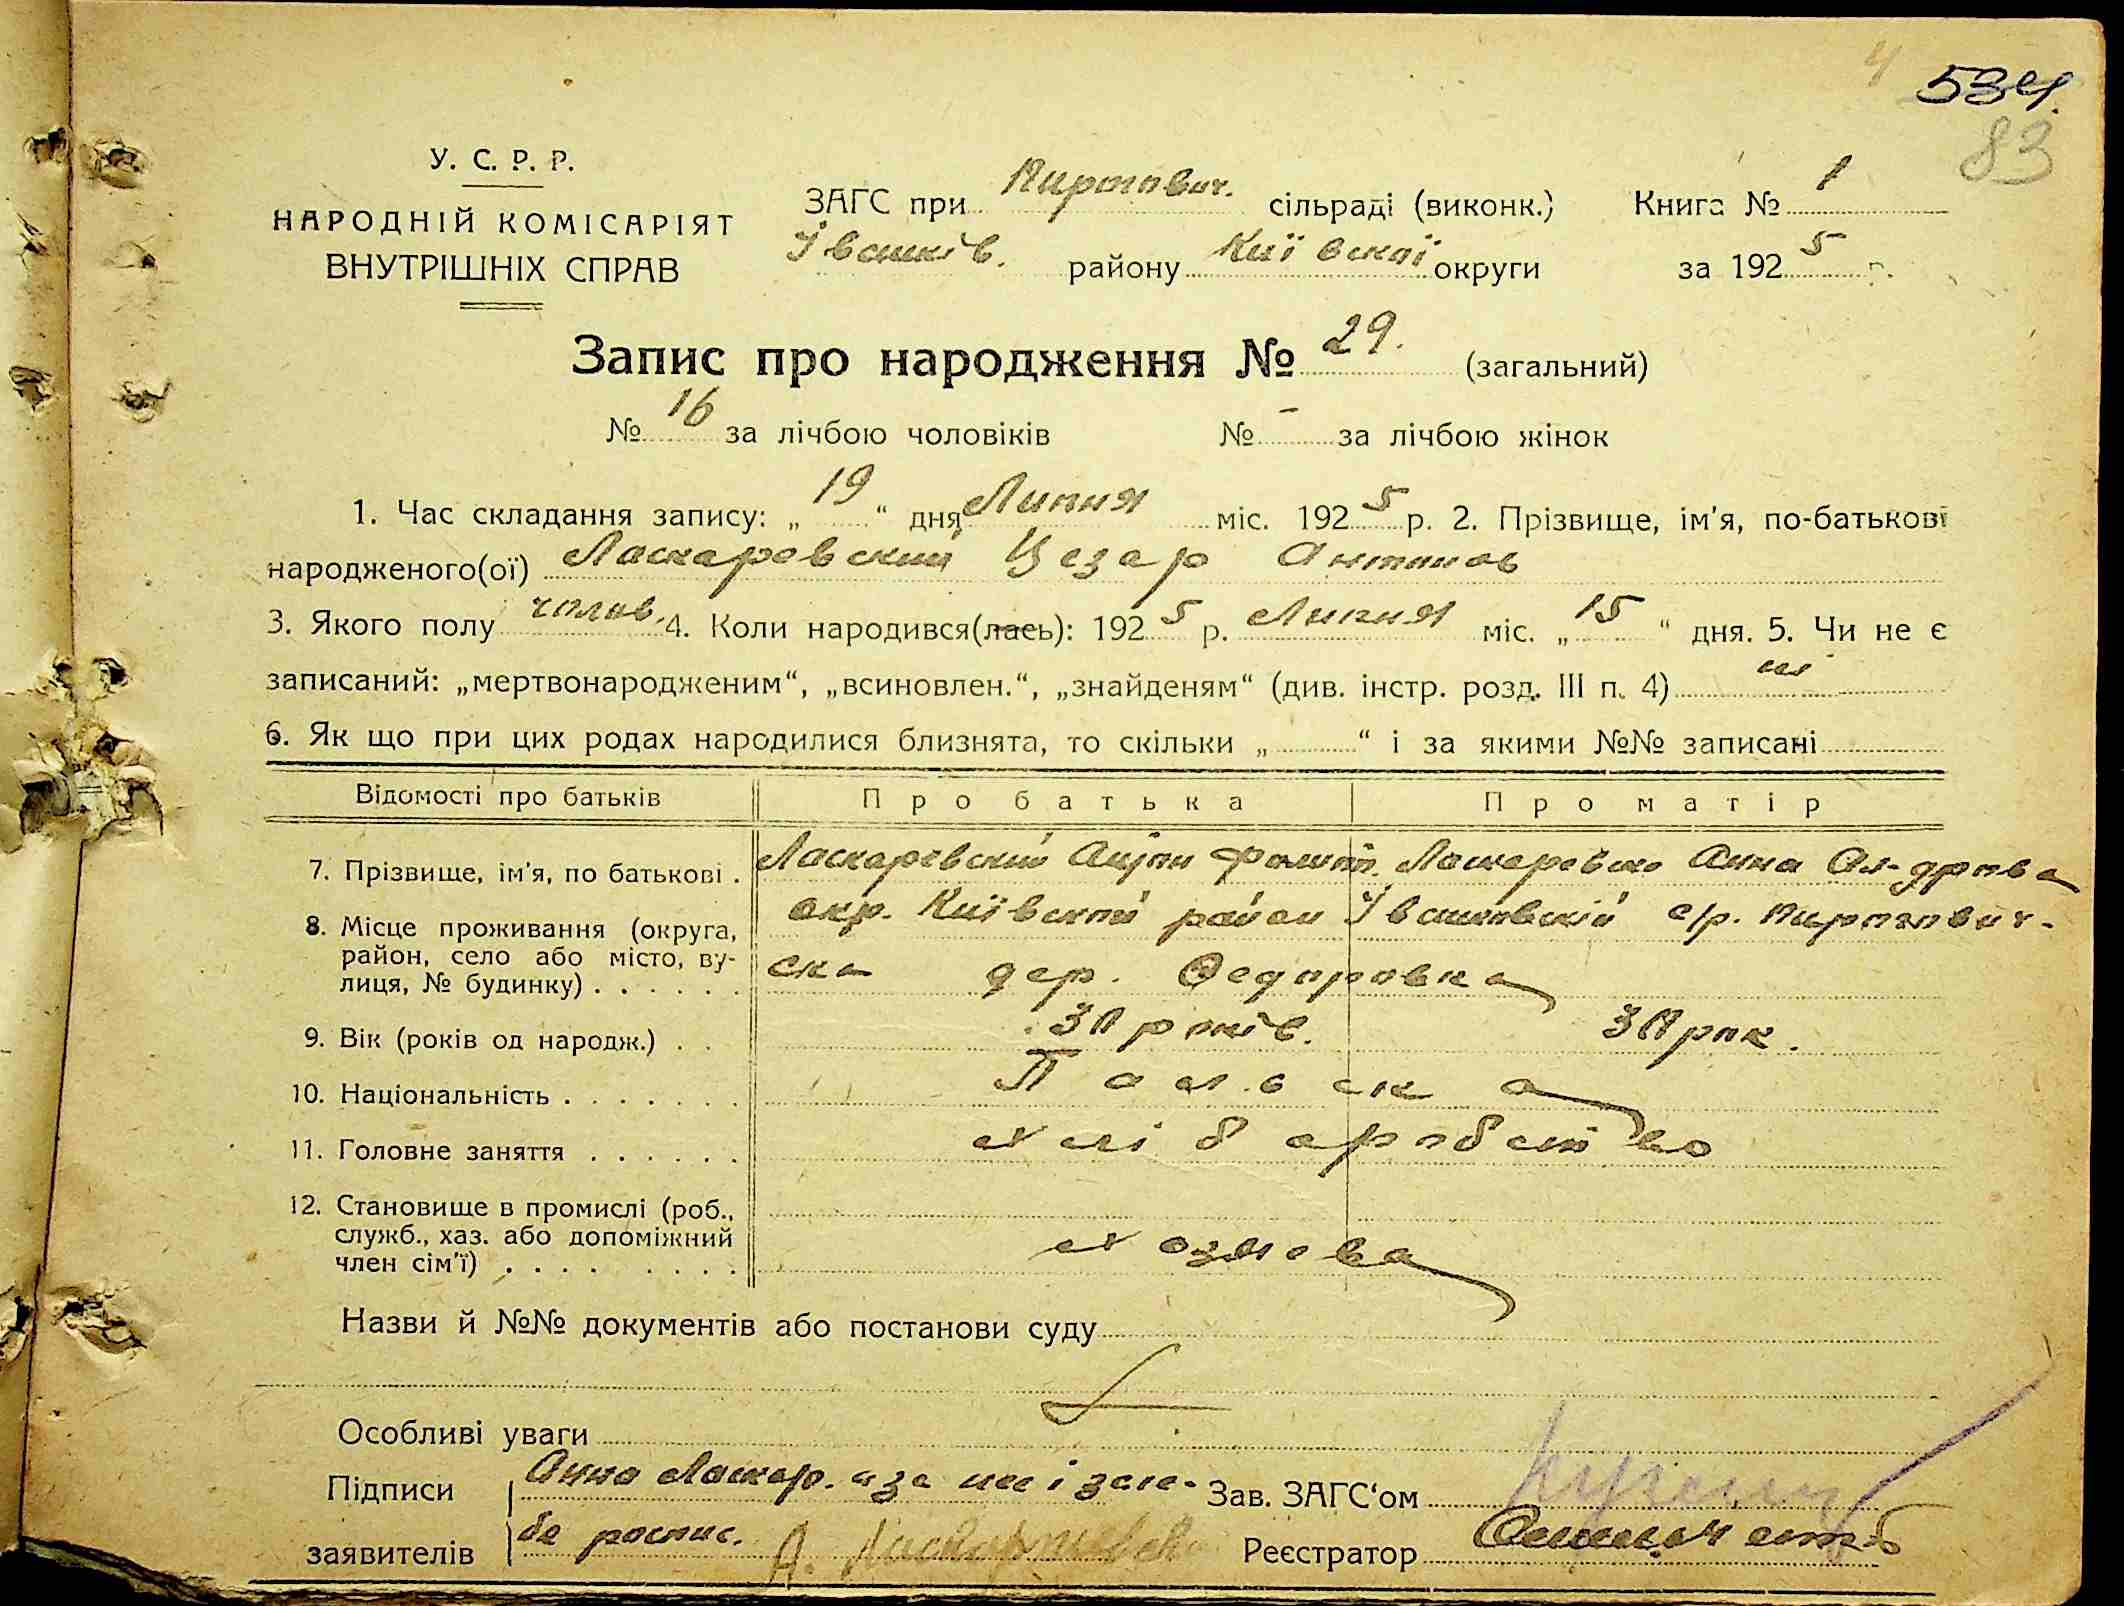 534.
83
У. С. Р. Р.
НАРОДНІЙ КОМІСАРІЯТ
ВНУТРІШНІХ СПРАВ
ЗАГС при сільраді (виконк.) Книга № 1
Івашків. району Київскої округи за 1925 г.
Запис про народження № 29. (загальний)
№ 16 за лічбою чоловіків № - за лічбою жінок
1. Час складання запису: „19“ дня Липня міс. 1925 р. 2. Прізвище, ім'я, по-батькові
народженого(ої) Ласкаревский Цезар Антонов
3. Якого полу чолов. 4. Коли народився(лась): 1925 р. Липня міс. „15“ дня. 5. Чи не є
записаний: „мертвонародженим“, „всиновлен.“, „знайденям“ (див. інстр. розд. III п. 4) ні
6. Як що при цих родах народилися близнята, то скільки „ “ і за якими №№ записані
Відомості про батьків Про батька Про матір
7. Прізвище, ім'я, по батькові . Ласкаревский Ласкаревска Анна
8. Місце проживання (округа, окр. Київской район Івашковский с/р.
район, село або місто, ву- ска дер. Федоровка
лиця, № будинку) . . . . . .
9. Вік (років од народж.) . . 30 років. 30 рок.
10. Національність . . . . . . . Польска
11. Головне заняття . . . . . . хліборобство
12. Становище в промислі (роб.,
служб., хаз. або допоміжний
член сім'ї) . . . . . . . . хозяева
Назви й №№ документів або постанови суду
Особливі уваги
Підписи Анна Ласкар. а за неї Зав. ЗАГС'ом
заявителів роспис. А. Реєстратор